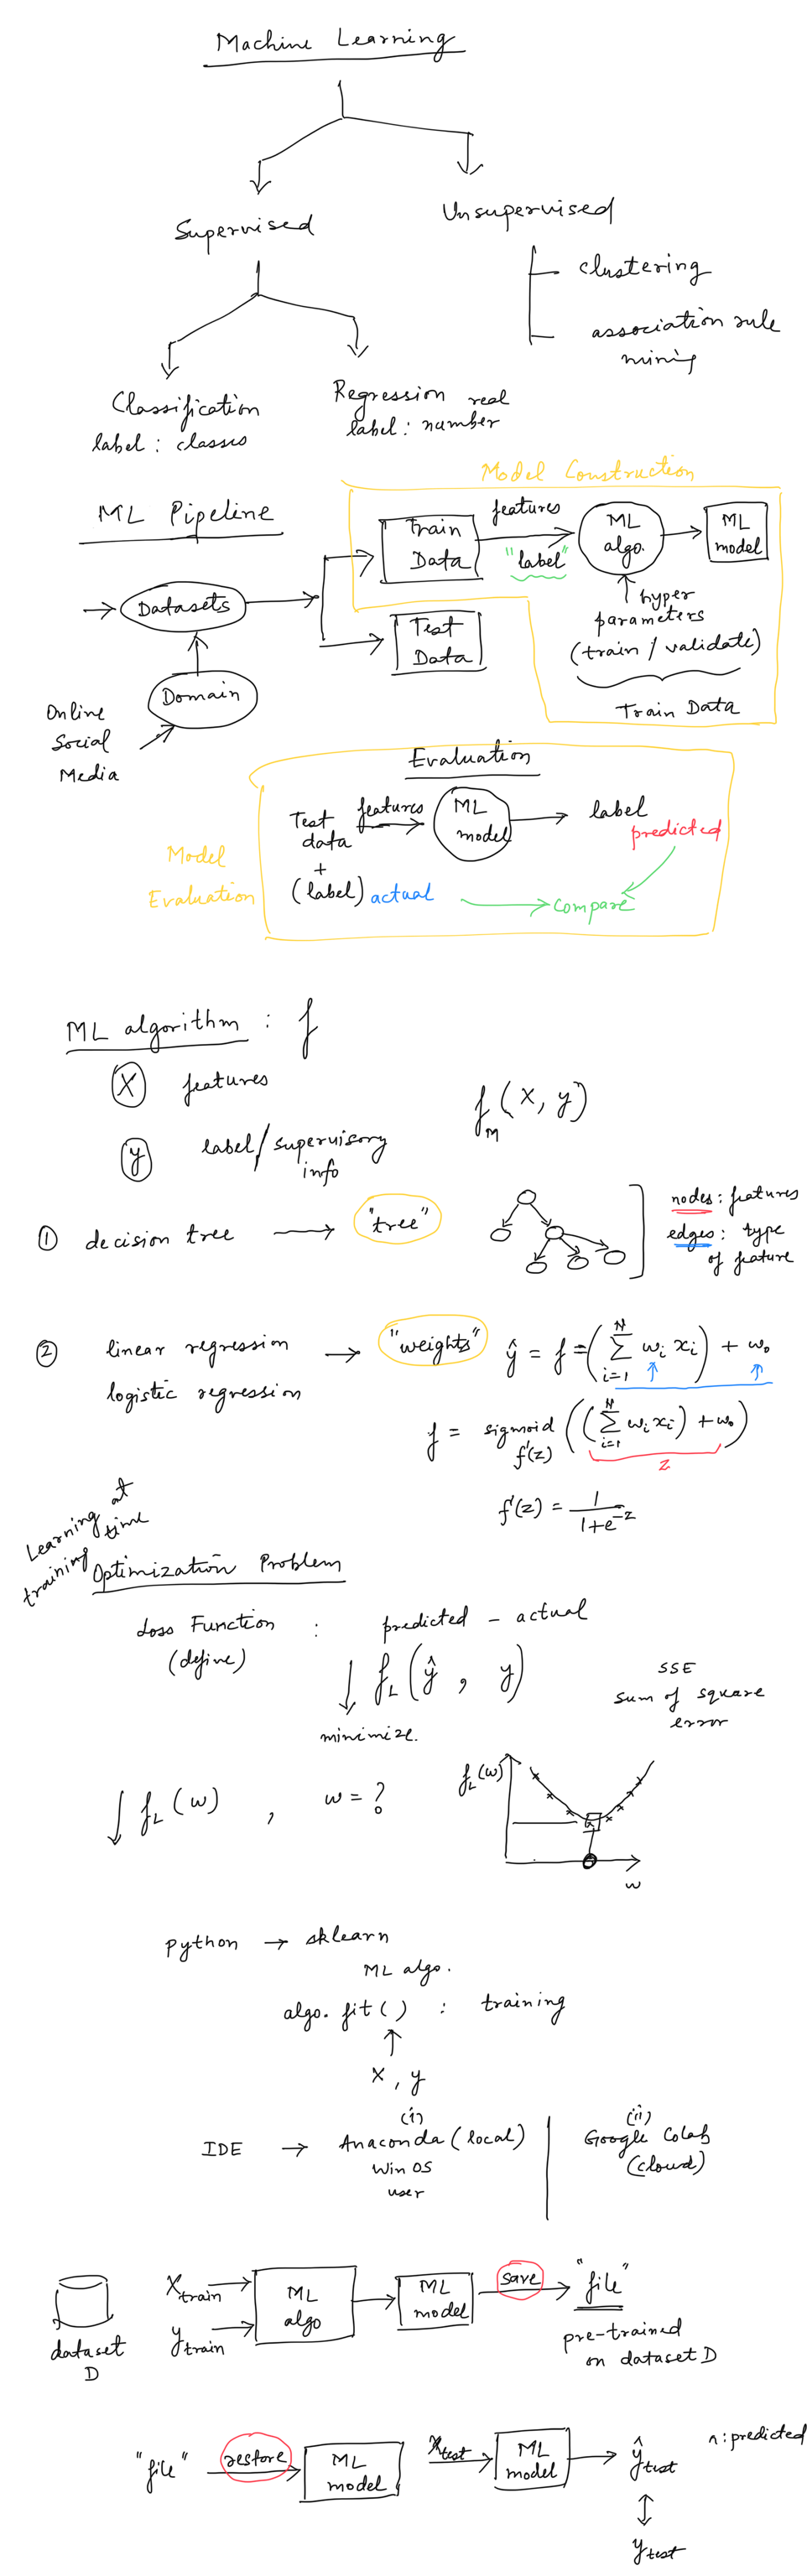 Machine Learning
Supervised
Unsupervised
clustering
association rule
mining
Classification
label : classes
Regression real
label : number
Model Construction
ML Pipeline
Train
Data
features
"label"
ML
algo.
ML
model
hyper
parameters
(train / validate)
Train Data
Datasets
Test
Data
Domain
Online
Social
Media
Evaluation
Model
Evaluation
Test
data
features
ML
model
label
predicted
+
(label) actual
compare
ML algorithm : f
X features
f_M (X, y)
y label/supervisory
info
① decision tree → "tree"
nodes : features
edges : type
of feature
② linear regression → "weights"
logistic regression
ŷ = f = (∑_{i=1}^{N} w_i x_i) + w_0
f = sigmoid ((∑_{i=1}^{N} w_i x_i) + w_0)
f'(z)
z
f'(z) = 1/(1+e^{-z})
Learning at
training time
Optimization Problem
Loss Function : predicted - actual
(define)
↓ f_L (ŷ , y)
minimize.
SSE
sum of square
error
↓ f_L (w) , w = ?
f_L(w)
w
Python → sklearn
ML algo.
algo. fit ( ) : training
X , y
IDE →
(i)
Anaconda (local)
Win OS
user
(ii)
Google Colab
(cloud)
dataset
D
X_train
y_train
ML
algo
ML
model
save
"file"
pre-trained
on dataset D
"file"
restore
ML
model
X_test
ML
model
ŷ_test
^ : predicted
y_test